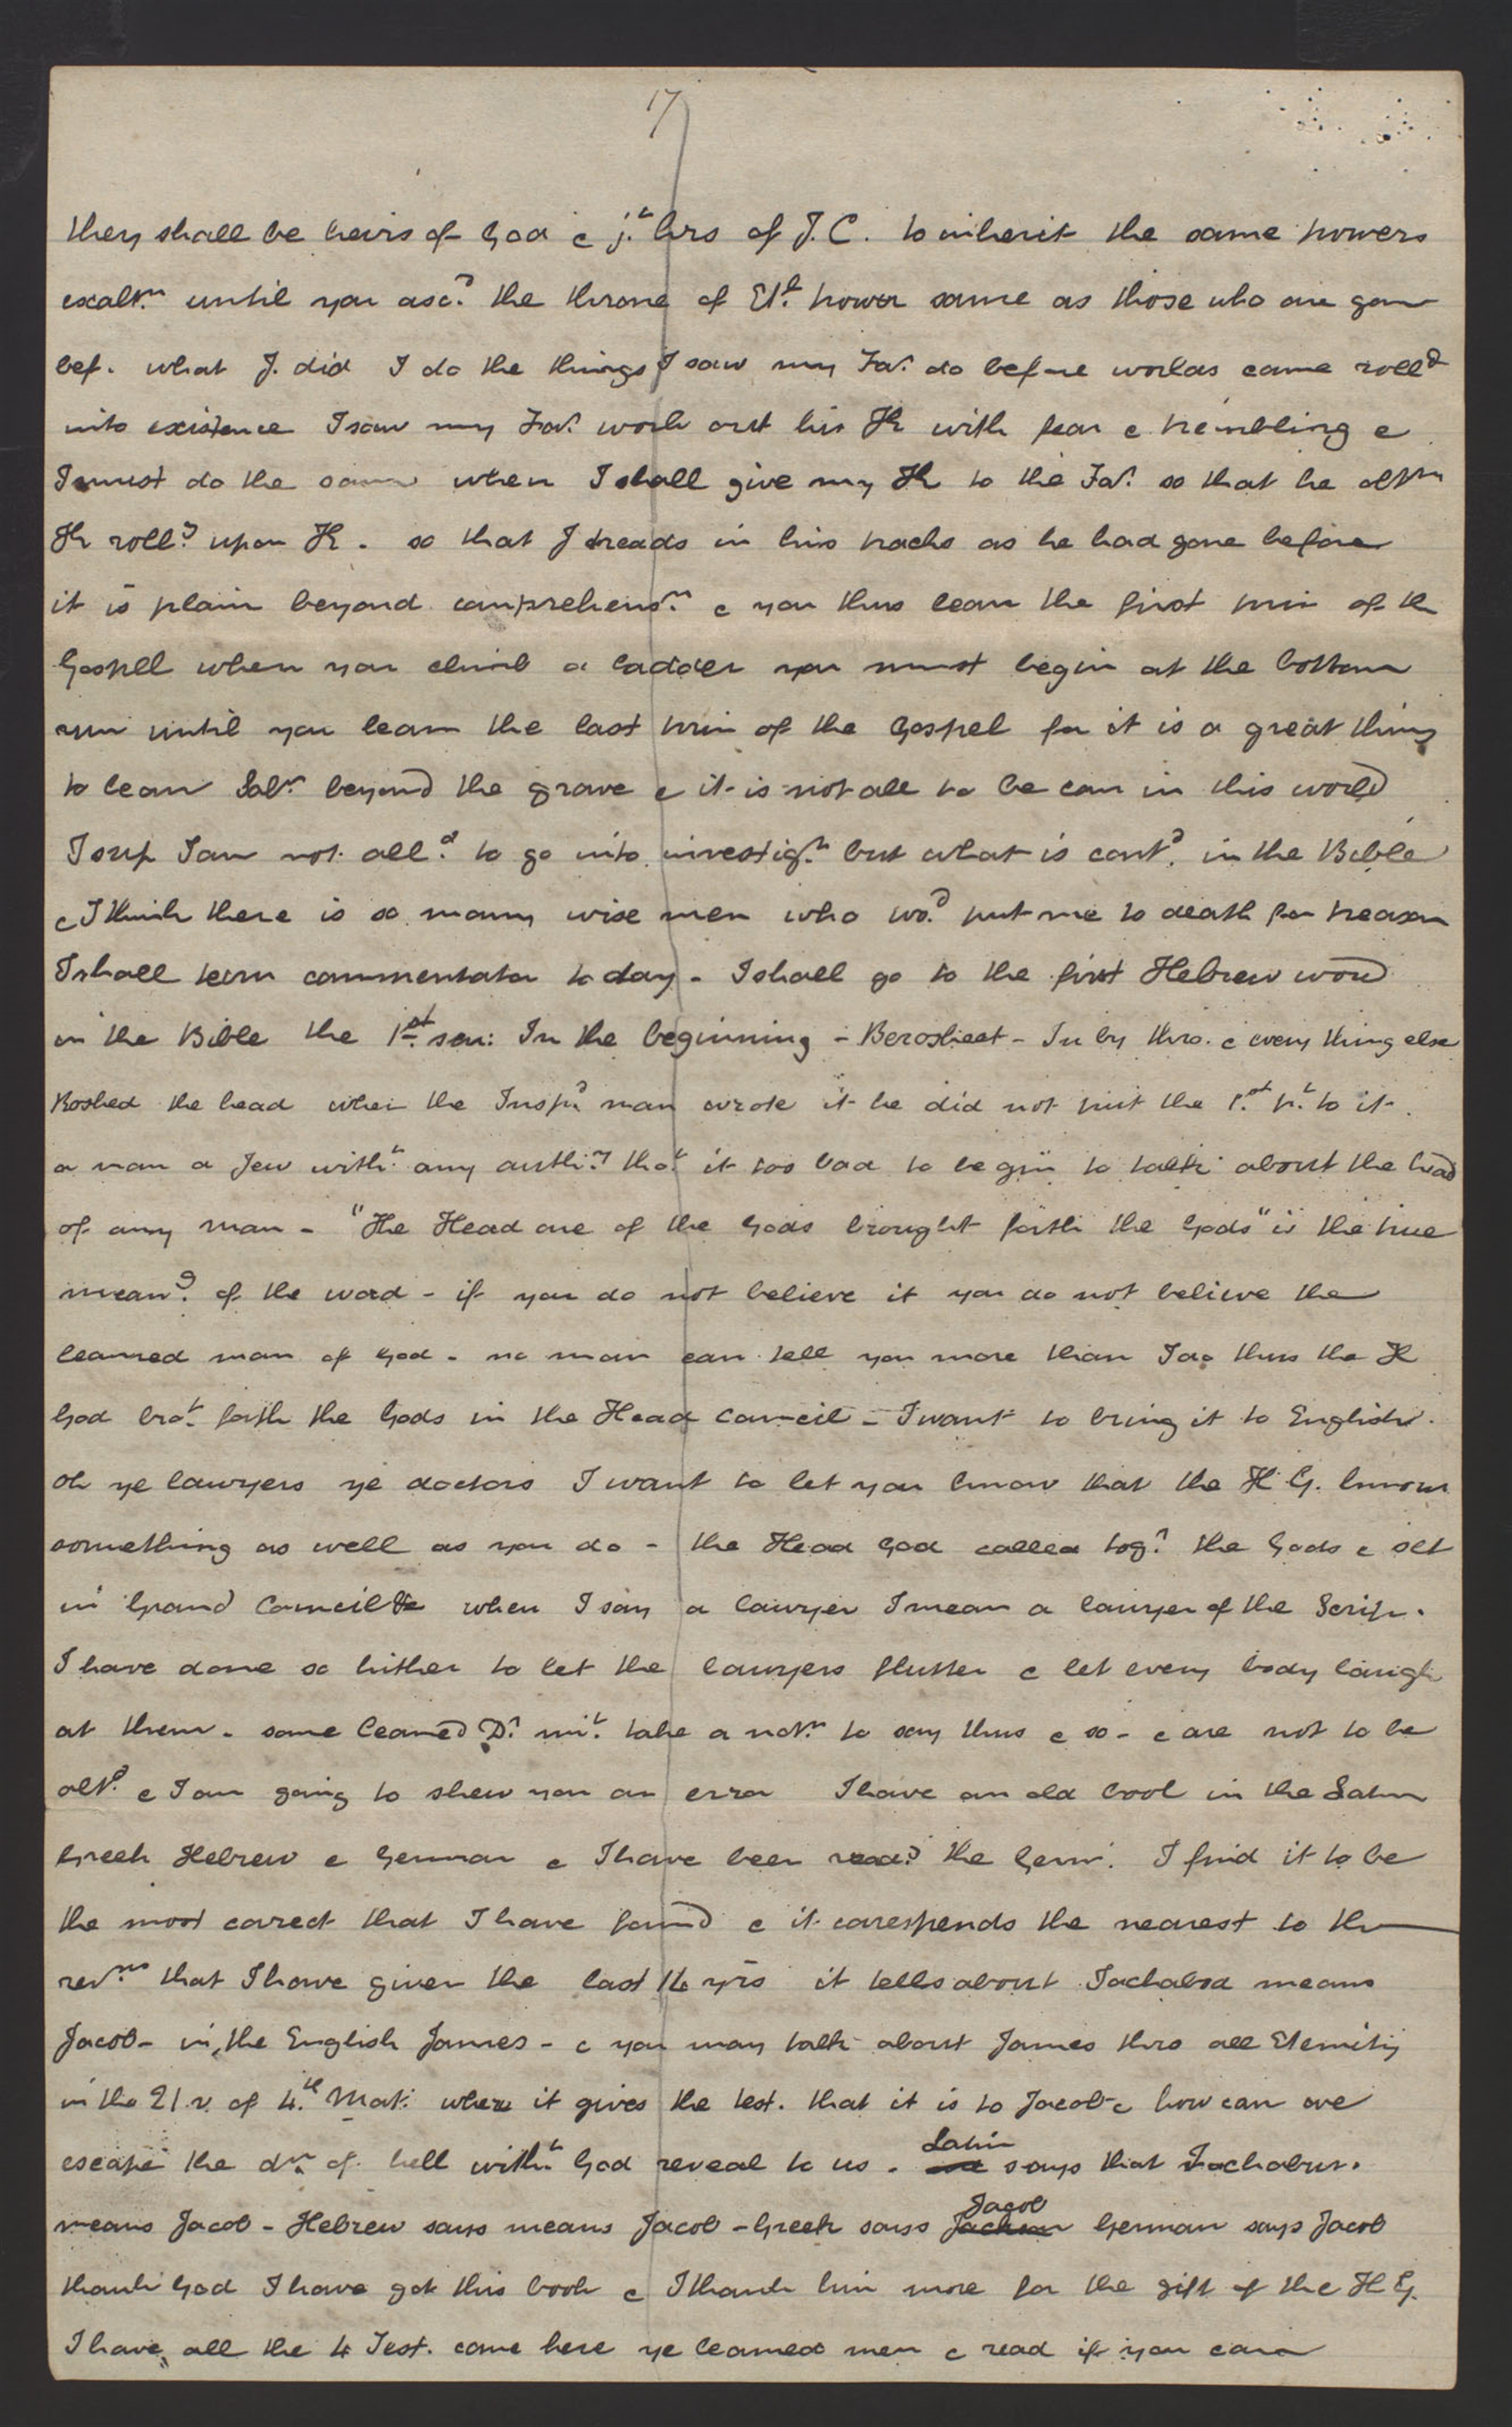 17
they shall be heirs of God & jt. hrs of J.C. to inherit the same powers
exaltn. until you ascd. the throne of Etl. power same as those who are gone
bef. what J. did I do the things I saw my Far. do before worlds came rolld
into existence I saw my Far. work out his K with fear & trembling &
I must do the same when I shall give my K to the Far. so that he obtn
K rollg. upon K. so that J treads in his tracks as he had gone before
it is plain beyond comprehensn. & you thus learn the first prin of th
Gospell when you climb a ladder you must begin at the bottom
run until you learn the last prin of the Gospel for it is a great thing
to learn Saln. beyond the grave & it is not all to be com in this world
I sup I am not alld. to go into investign. but what is contd. in the Bible
& I think there is so many wise men who wod. put me to death for treason
I shall turn commentator to day - I shall go to the first Hebrew word
in the Bible the 1st. sen: In the beginning - Berosheat - In by thro. & every thing else
Roshed the head when the Inspd. man wrote it he did not put the 1st. pt. to it.
a man a Jew witht. any authy. thot. it too bad to begin to talk about the head
of any man - "The Head one of the Gods brought forth the Gods" is the true
meang. of the word - if you do not believe it you do not believe the
learned man of God - no man can tell you more than I do thus the H
God brot. forth the Gods in the Head Council - I want to bring it to English.
oh ye lawyers ye doctors I want to let you know that the H.G. knows
something as well as you do - the Head God called togr. the Gods & set
in Grand Council &c when I say a lawyer I mean a lawyer of the Scrip.
I have done so hither to let the lawyers flutter & let every body laugh
at them - some learned Dr. mit. take a notn. to say thus & so - & are not to be
altd. & I am going to shew you an error I have an old book in the Latin
Greek Hebrew & German & I have been readg. the Germ. I find it to be
the most correct that I have found & it corresponds the nearest to the
revns. that I have given the last 16 yrs it tells about Jachabod means
Jacob - in the English James - & you may talk about James thro all Eternity
in the 21 v. of 4th. Mat: where it gives the test. that it is to Jacob & how can we
escape the dn. of hell witht. God reveal to us. Latin says that Jachabus.
means Jacob - Hebrew says means Jacob - Greek says Jacob German says Jacob
thank God I have got this book & I thank him more for the gift of the H G.
I have all the 4 Test. come here ye learned men & read if you can